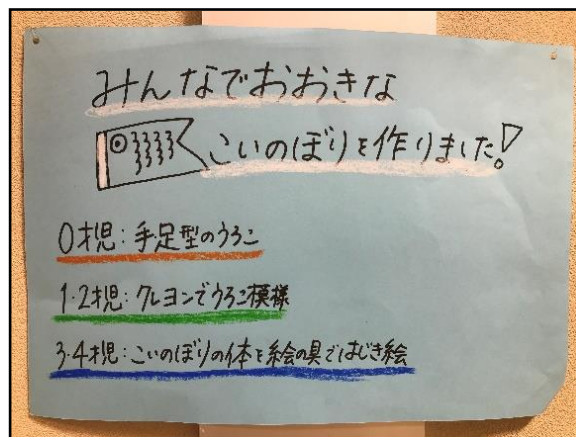 みんなでおおきな
こいのぼりを作りました!
0才児:手足型のうろこ
1・2才児:クレヨンでうろこ模様
3・4才児:こいのぼりの体を絵の具ではじき絵